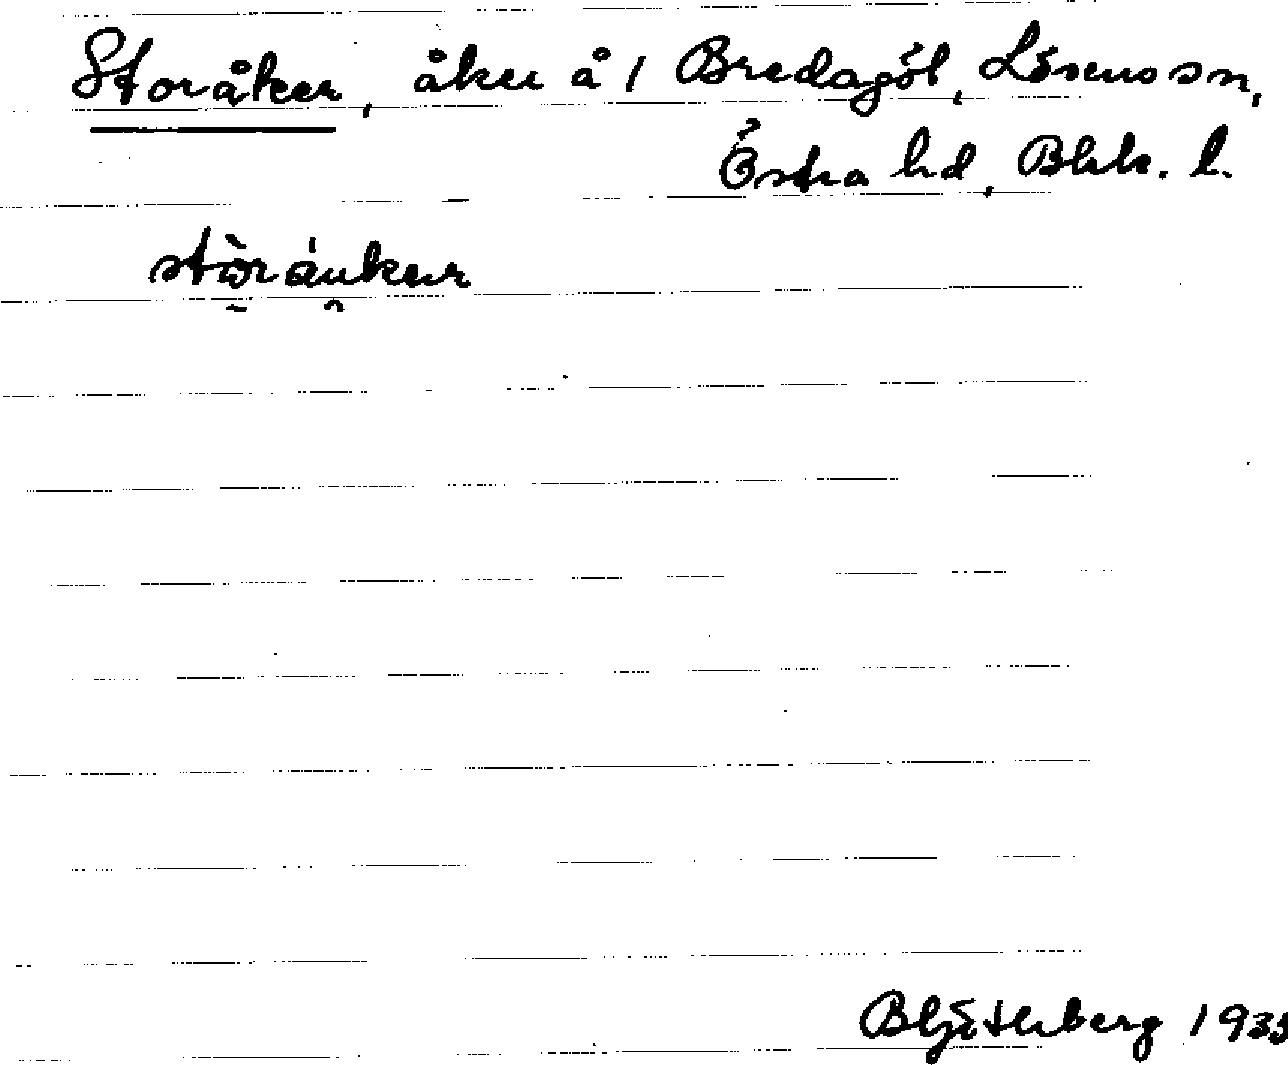 Storåker, åker å 1 Bredagöl, Lösens sn,
Östra hd, Blek. l.
stòráukær
B Ljötleberg 1935